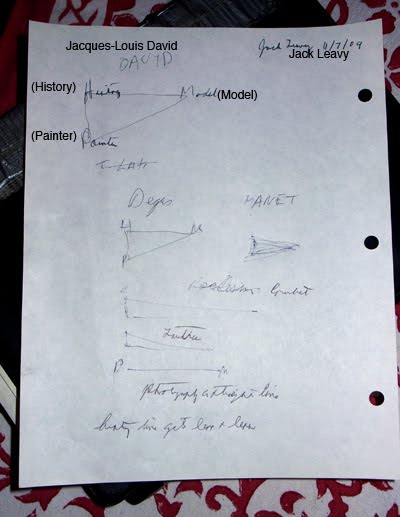 Jacques-Louis David
DAVID
Jack Leavy 11/7/09
Jack Leavy
(History) History
Model (Model)
(Painter) Painter
Degas MANET
H M
P
Realism Courbet
P M
photography a straight line
history line gets less & less